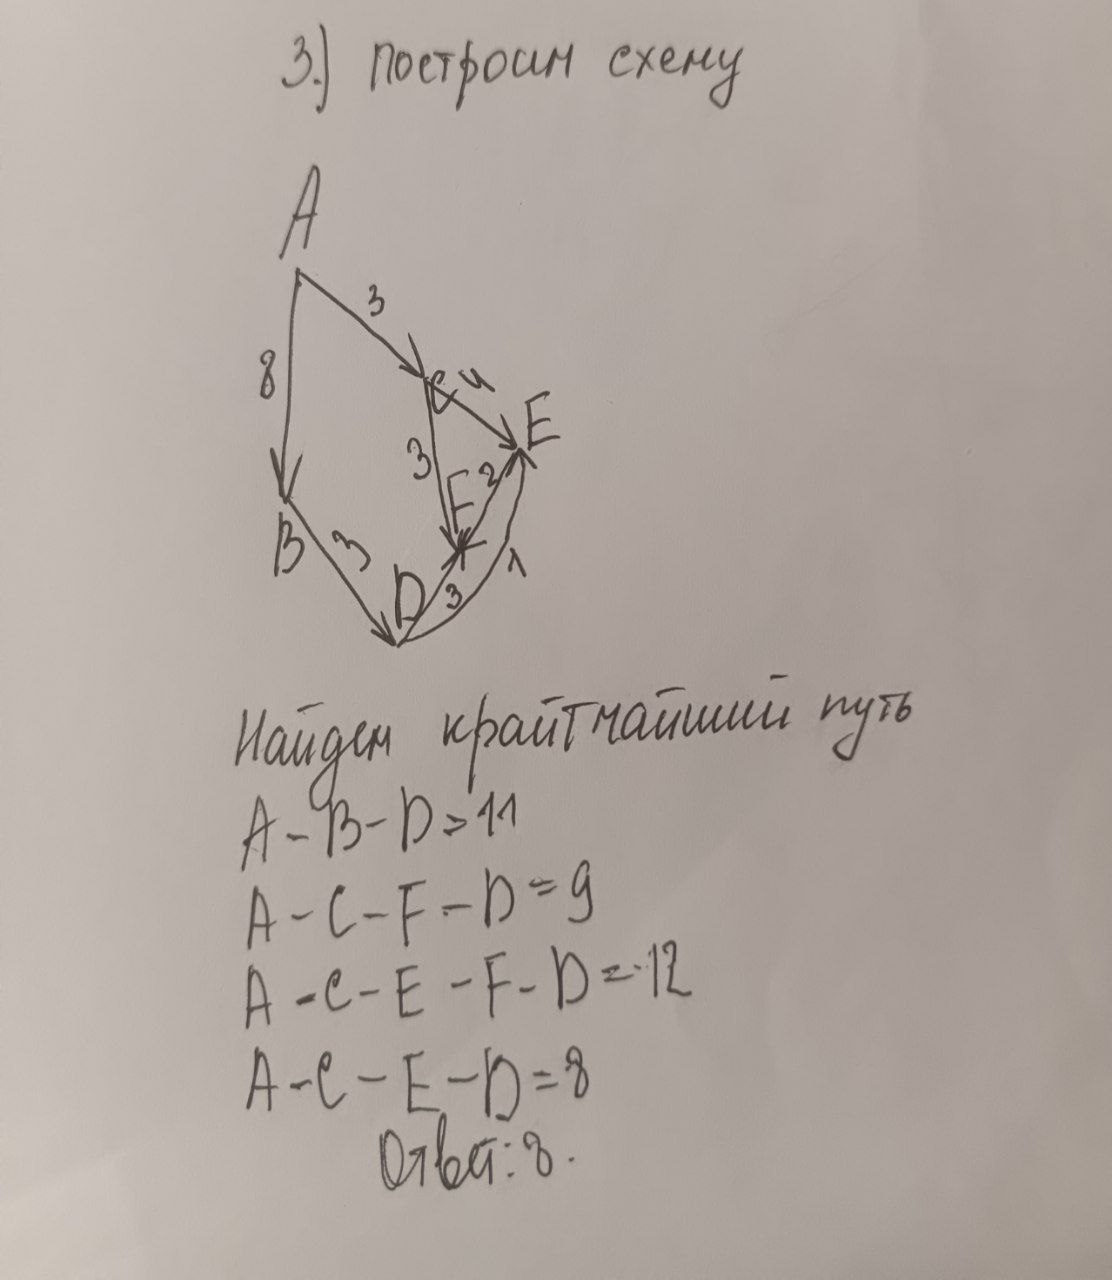 3.) построим схему
A
3
8
C 4
E
3
F 2
B 3
D 3 1
Найдем крайтчайший путь
A-B-D=11
A-C-F-D=9
A-C-E-F-D=12
A-C-E-D=8
Ответ: 8.